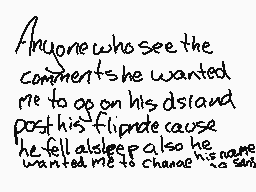 Anyone who see the
comments he wanted
me to go on his dsi and
post his flipnote cause
he fell alsleep also he
wanted me to change his name
to sans